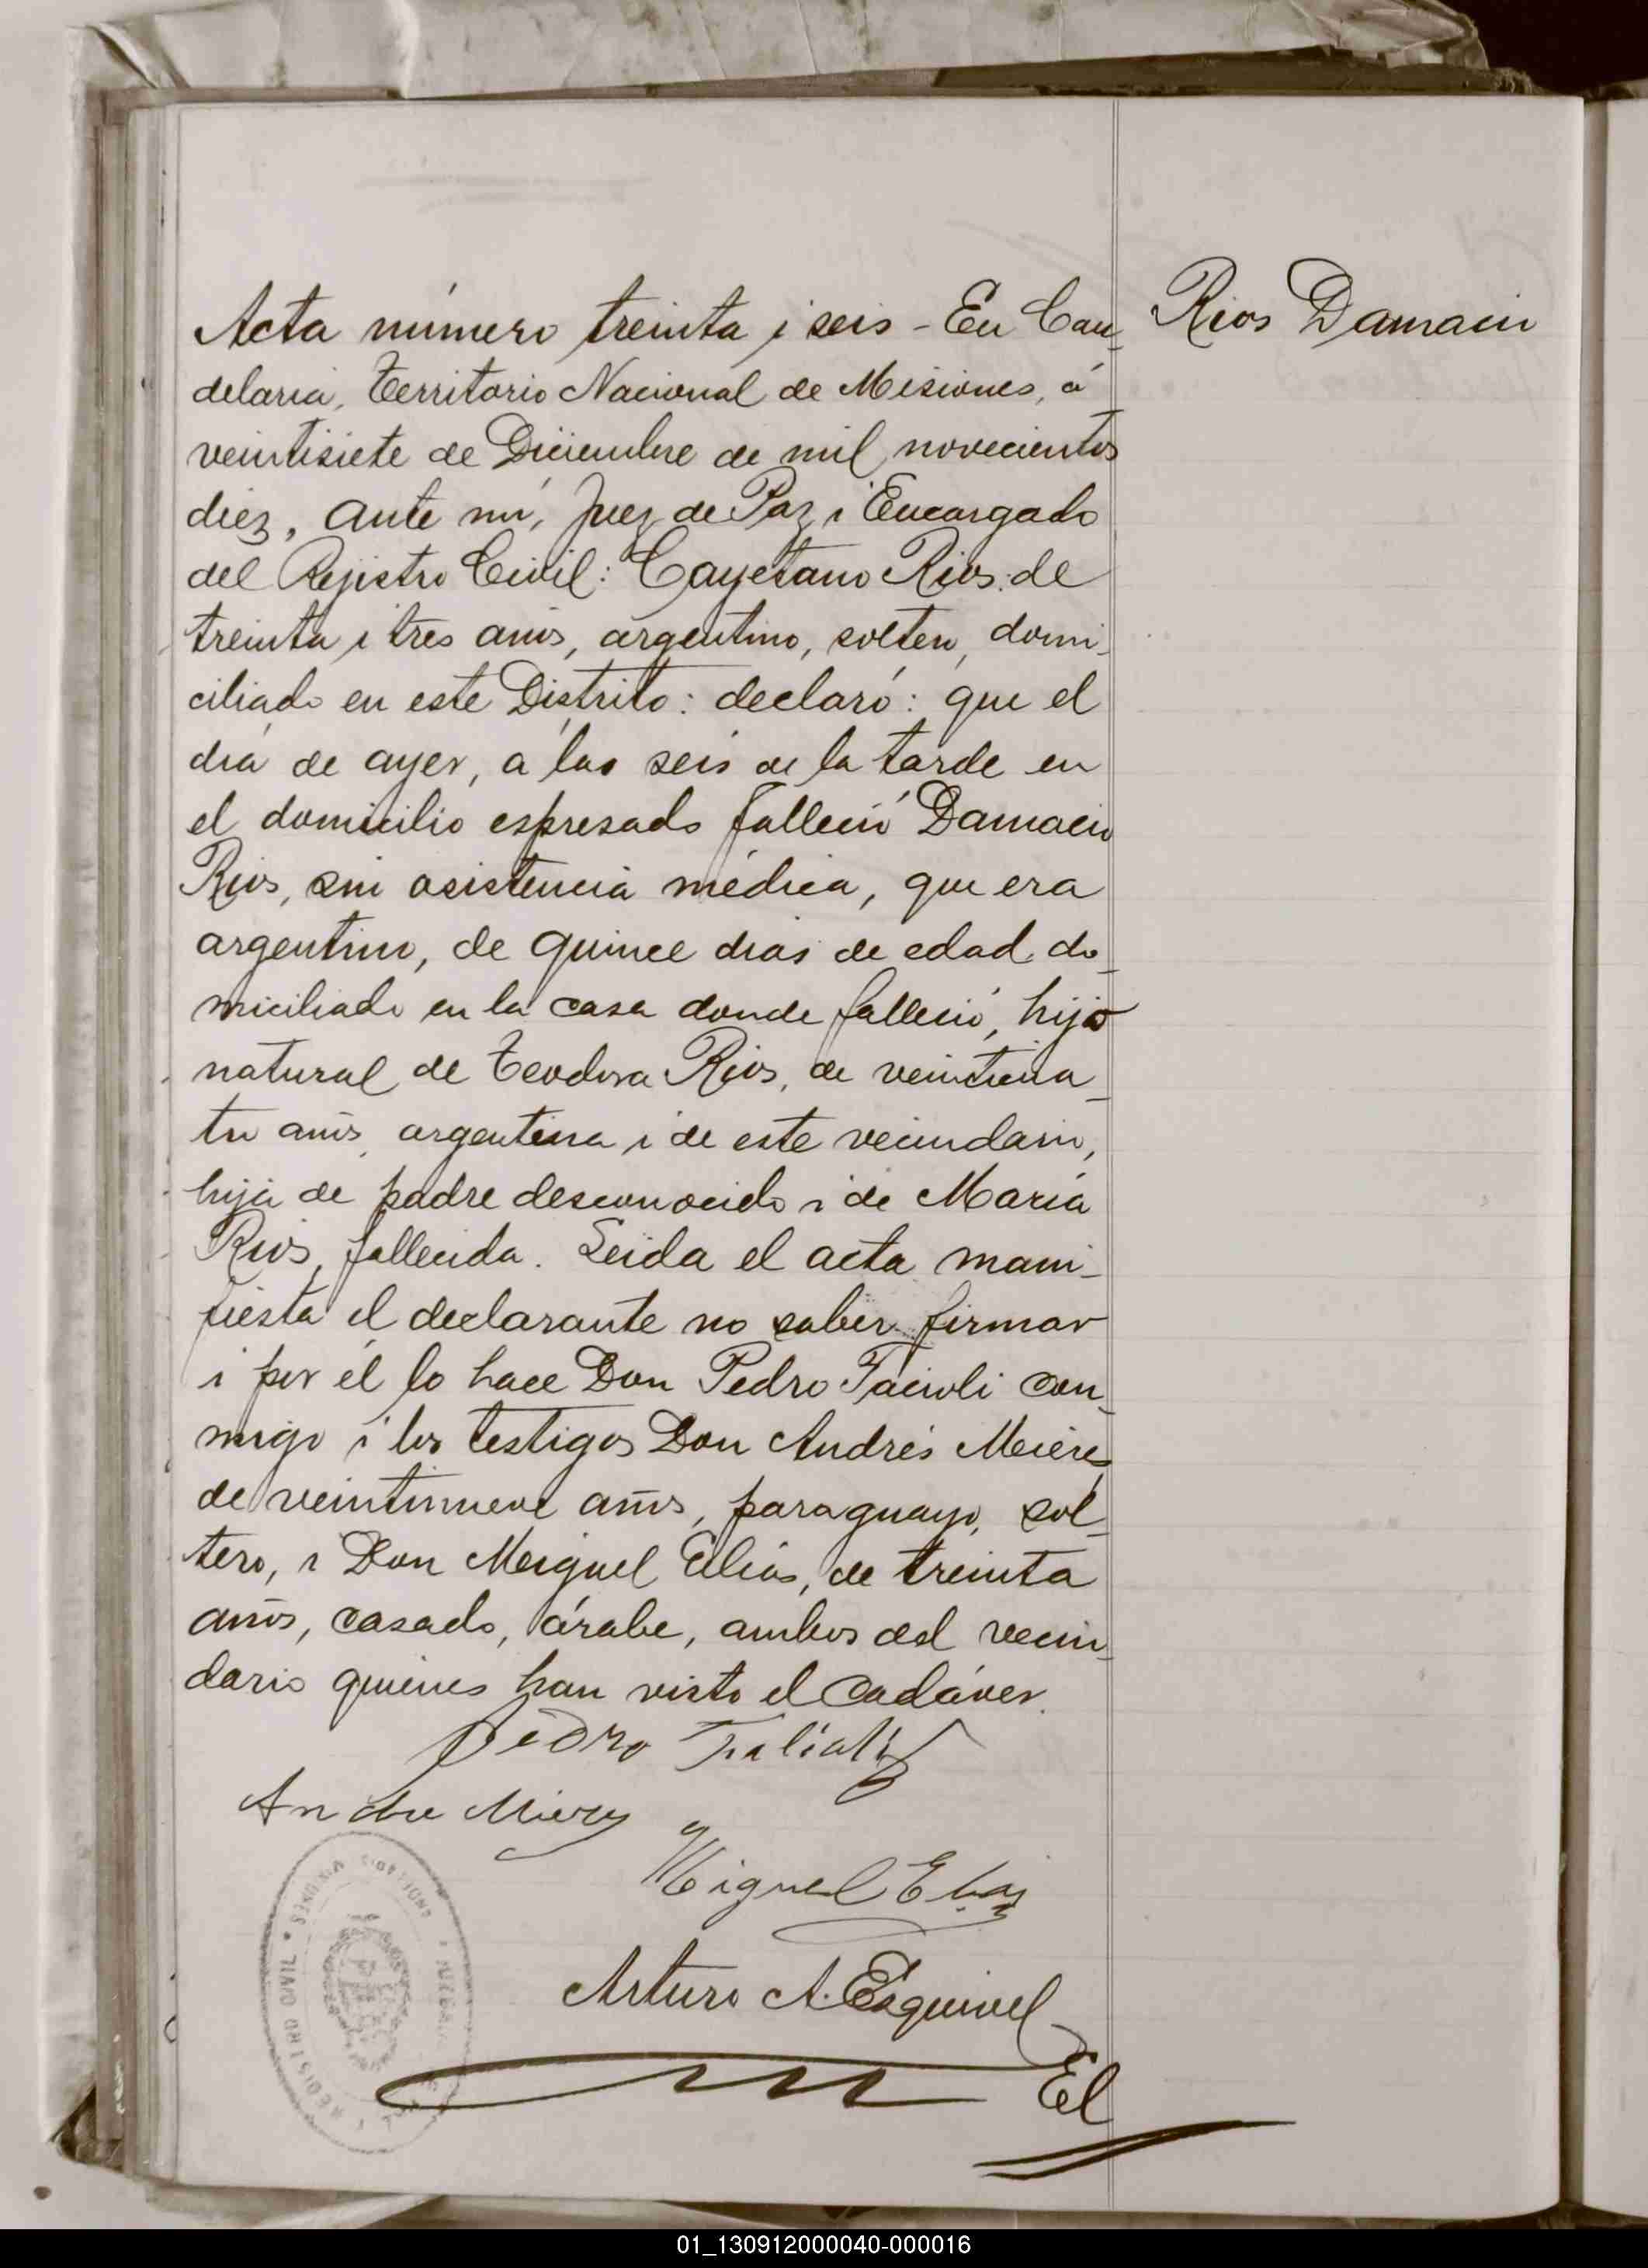 Rios Damacio
Acta número treinta i seis - En Can-
delaria, Territorio Nacional de Misiones, á
veintisiete de Diciembre de mil novecientos
diez, ante mí, Juez de Paz i Encargado
del Rejistro Civil: Cayetano Rios: de
treinta i tres años, argentino, soltero, domi-
ciliado en este Distrito: declaró: que el
día de ayer, á las seis de la tarde en
el domicilio espresado falleció Damacio
Rios, sin asistencia médica, que era
argentino, de quince dias de edad, do-
miciliado en la casa donde falleció, hijo
natural de Teodora Rios, de veinticua-
tro años, argentina i de este vecindario,
hija de padre desconocido i de María
Rios, fallecida. Leida el acta mani-
fiesta el declarante no saber firmar
i por él lo hace Don Pedro Facioli con-
migo i los testigos Don Andrés Mieres
de veintinueve años, paraguayo, sol-
tero, i Don Miguel Elias, de treinta
años, casado, árabe, ambos del vecin-
dario quienes han visto el cadáver.
Pedro
Andre Mieres
Miguel Elias
Arturo A. Esquivel
El
REGISTRO CIVIL
MISIONES
01_130912000040-000016